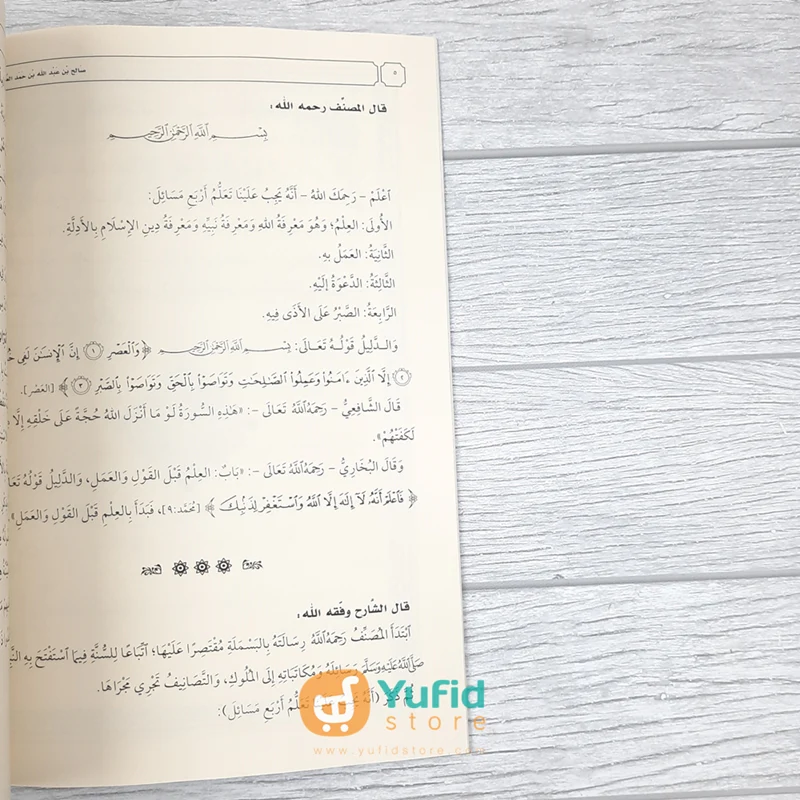 ٥
صالح بن عبد الله بن حمد
قال المصنِّف رحمه الله:
بِسْمِ ٱللَّهِ ٱلرَّحْمَٰنِ ٱلرَّحِيمِ
ٱعْلَمْ – رَحِمَكَ اللهُ – أَنَّهُ يَجِبُ عَلَيْنَا تَعَلُّمُ أَرْبَعِ مَسَائِلَ:
الأُولَى: العِلْمُ؛ وَهُوَ مَعْرِفَةُ اللهِ وَمَعْرِفَةُ نَبِيِّهِ وَمَعْرِفَةُ دِينِ الإِسْلَامِ بِالأَدِلَّةِ.
الثَّانِيَةُ: العَمَلُ بِهِ.
الثَّالِثَةُ: الدَّعْوَةُ إِلَيْهِ.
الرَّابِعَةُ: الصَّبْرُ عَلَى الأَذَى فِيهِ.
وَالدَّلِيلُ قَوْلُهُ تَعَالَى: بِسْمِ ٱللَّهِ ٱلرَّحْمَٰنِ ٱلرَّحِيمِ ﴿وَٱلْعَصْرِ ١ إِنَّ ٱلْإِنسَٰنَ لَفِى
٢ إِلَّا ٱلَّذِينَ ءَامَنُوا۟ وَعَمِلُوا۟ ٱلصَّٰلِحَٰتِ وَتَوَاصَوْا۟ بِٱلْحَقِّ وَتَوَاصَوْا۟ بِٱلصَّبْرِ ٣﴾ [العَصْر].
قَالَ الشَّافِعِيُّ – رَحِمَهُ اللَّهُ تَعَالَى –: «هَٰذِهِ السُّورَةُ لَوْ مَا أَنْزَلَ اللهُ حُجَّةً عَلَى خَلْقِهِ إِلَّا
لَكَفَتْهُمْ».
وَقَالَ البُخَارِيُّ – رَحِمَهُ اللَّهُ تَعَالَى –: «بَابٌ: العِلْمُ قَبْلَ القَوْلِ وَالعَمَلِ، وَالدَّلِيلُ قَوْلُهُ
﴿فَٱعْلَمْ أَنَّهُۥ لَآ إِلَٰهَ إِلَّا ٱللَّهُ وَٱسْتَغْفِرْ لِذَنۢبِكَ﴾ [مُحَمَّد:٩]، فَبَدَأَ بِالعِلْمِ قَبْلَ القَوْلِ وَالعَمَلِ».
قال الشّارح وفّقه الله:
ٱبْتَدَأَ المُصَنِّفُ رَحِمَهُ اللَّهُ رِسَالَتَهُ بِالبَسْمَلَةِ مُقْتَصِرًا عَلَيْهَا؛ ٱتِّبَاعًا لِلسُّنَّةِ فِيمَا ٱسْتَفْتَحَ بِهِ
صَلَّى اللَّهُ عَلَيْهِ وَسَلَّمَ رَسَائِلَهُ وَمُكَاتَبَاتِهِ إِلَى المُلُوكِ، وَالتَّصَانِيفُ تَجْرِي مَجْرَاهَا.
تَعَلُّمُ أَرْبَعِ مَسَائِلَ):
Yufid
store
www.yufidstore.com